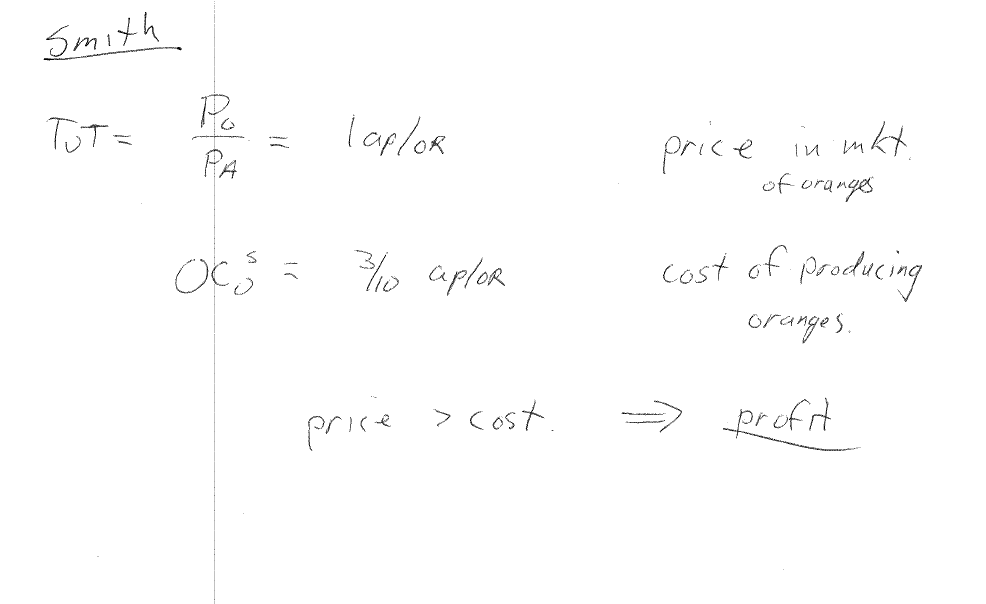 Smith
TOT = P_O / P_A = 1 ap/OR price in mkt.
of oranges
OC_O^S = 3/10 ap/OR cost of producing
oranges.
price > cost. ⟹ profit